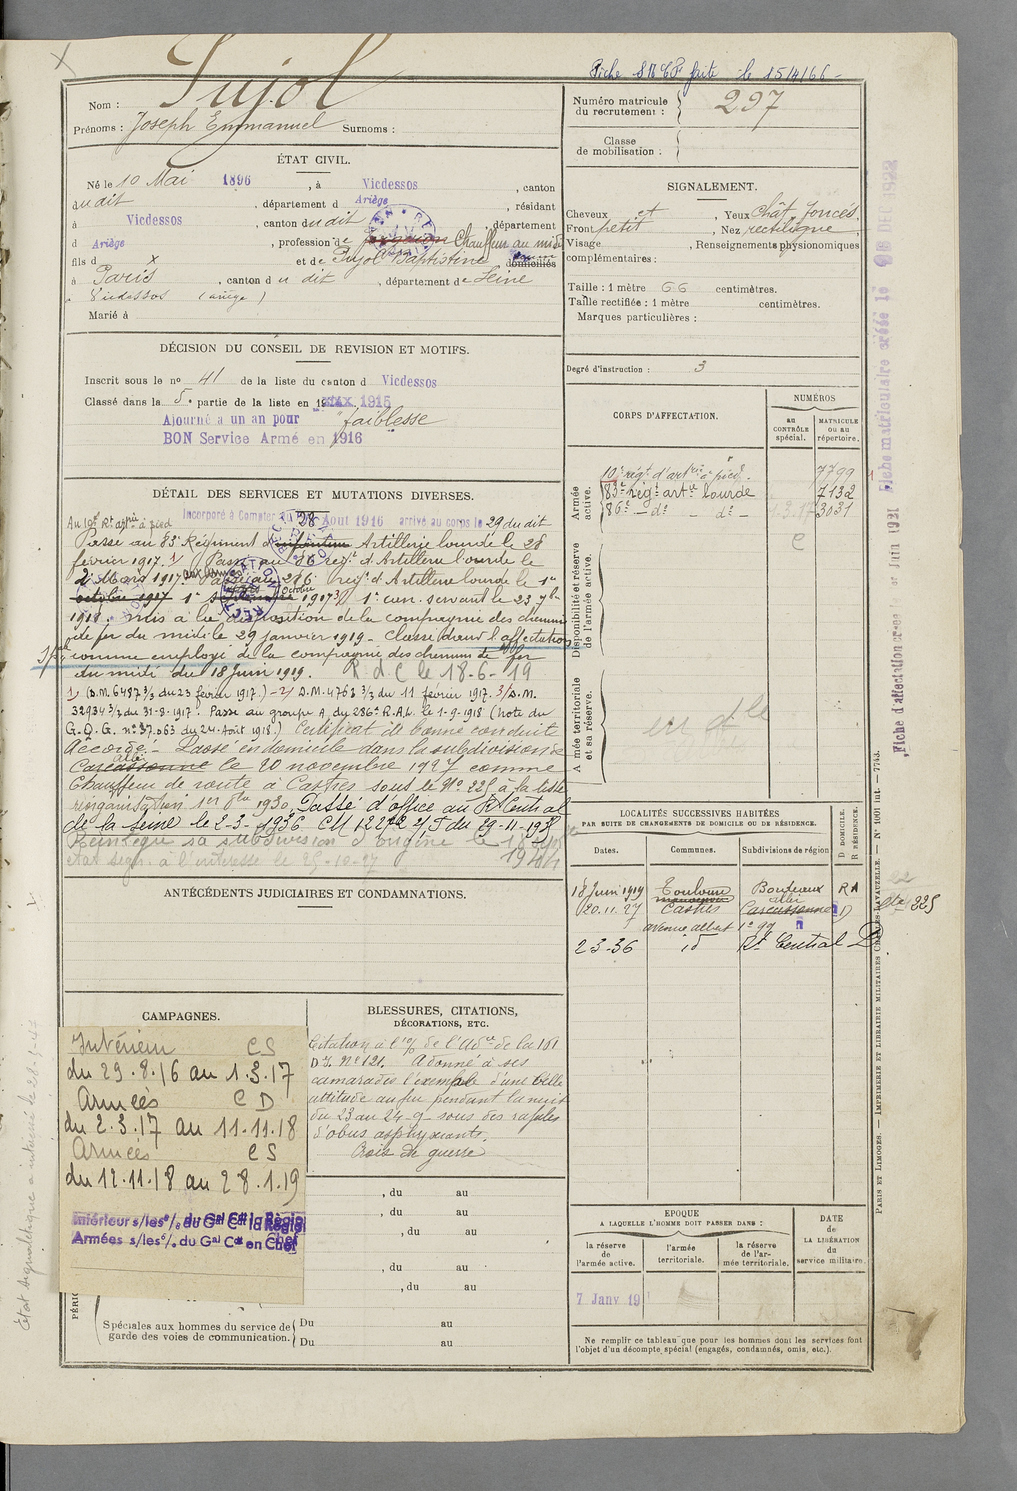 Fiche SNCF faite le 15/4/66
Nom : Pujol
Prénoms : Joseph Emmanuel Surnoms :
ÉTAT CIVIL.
Né le 10 Mai 1896, à Vicdessos, canton
dudit, département d Ariège, résidant
à Vicdessos, canton dudit, département
d Ariège, profession de Chauffeur au midi
fils d x et de Pujol Baptistine domiciliés
à Paris, canton du dit, département de Seine
à Vicdessos (ariège)
Marié à
DÉCISION DU CONSEIL DE REVISION ET MOTIFS.
Inscrit sous le no 41 de la liste du canton d Vicdessos
Classé dans la 5e partie de la liste en 1915
Ajourné a un an pour "faiblesse
BON Service Armé en 1916
DÉTAIL DES SERVICES ET MUTATIONS DIVERSES.
Incorporé à Compter du 28 Août 1916 arrivé au corps le 29 du dit
Passe au 83e Régiment d'infanterie Artillerie lourde le 28
février 1917. 1) Passe au 86e régt d'Artillerie lourde le
2 Mars 1917 aux armées Passe au 286e regt d'Artillerie lourde le 1er
octobre 1917 1er Octobre 1917 3) 1er can. servant le 23 7bre
1918. Mis à la disposition de la compagnie des chemins
de fer du midi le 29 janvier 1919 - Classé dans l'affectation
Spale comme employé de la compagnie des chemins de fer
du midi du 18 Juin 1919. R. d. C le 18-6-19
1) (D.M. 6487 3/3 du 23 février 1917.) - 2) D.M. 4763 3/3 du 11 février 1917. 3) D.M.
32934 3/3 du 31-8-1917. Passe au groupe A du 286e R.A.L. le 1-9-1918 (note du
G.Q.G. no 37.063 du 24-Août 1918.) Certificat de bonne conduite
Accordé. Passé en domicile dans la subdivision de
Carcassonne Albi le 20 novembre 1927 comme
Chauffeur de route à Castres sous le No 225 à la liste
réorganisation 1er 8bre 1930. Passé d'office au Rt Central
de la Seine le 2-3-1936 CM 12272 2/T du 29-11-1935
Réintègre sa subdivision d'origine le 18
1944
état sign. à l'intéressé le 25-10-27
ANTÉCÉDENTS JUDICIAIRES ET CONDAMNATIONS.
CAMPAGNES.
Intérieur CS
du 29.8.16 au 1.3.17
Armées CD
du 2.3.17 au 11.11.18
Armées CS
du 12.11.18 au 28.1.19
Intérieur s/les o/. du Gal Ct la Région
Armées s/les o/. du Gal Ct en Chef
BLESSURES, CITATIONS,
DÉCORATIONS, ETC.
Citation à l'o/ de l'ADre de la 151
D.I. No 121. A donné à ses
camarades l'exemple d'une belle
attitude au feu pendant la nuit
du 23 au 24-9- sous des rafales
d'obus asphyxiants.
Croix de guerre
, du au
, du au
, du au
, du au
, du au
Spéciales aux hommes du service de garde des voies de communication.
Du au
Du au
Numéro matricule du recrutement : 297
Classe de mobilisation :
SIGNALEMENT.
Cheveux et, Yeux Chât foncés
Front petit, Nez rectiligne
Visage, Renseignements physionomiques
complémentaires :
Taille : 1 mètre 66 centimètres.
Taille rectifiée : 1 mètre centimètres.
Marques particulières :
Degré d'instruction : 3
CORPS D'AFFECTATION.
NUMÉROS
AU CONTRÔLE SPÉCIAL.
MATRICULE OU AU RÉPERTOIRE.
Armée active.
10e régt d'artrie à pied. 7799
83e régt artie lourde 7132
86e - do - do - 1.3.17 3031
Disponibilité et réserve de l'armée active.
Armée territoriale et sa réserve.
LOCALITÉS SUCCESSIVES HABITÉES
PAR SUITE DE CHANGEMENTS DE DOMICILE OU DE RÉSIDENCE.
Dates. Communes. Subdivisions de région. D DOMICILE. R RÉSIDENCE.
18 Juin 1919 Toulouse Bordeaux R
20.11.27 Castres Carcassonne Albi D
avenue albert 1er 99
2-3-36 id Rt Central D
ÉPOQUE
A LAQUELLE L'HOMME DOIT PASSER DANS :
la réserve de l'armée active.
l'armée territoriale.
la réserve de l'armée territoriale.
DATE de LA LIBÉRATION du service militaire.
7 Janv 19
Ne remplir ce tableau que pour les hommes dont les services font
l'objet d'un décompte spécial (engagés, condamnés, omis, etc.).
PARIS ET LIMOGES. — IMPRIMERIE ET LIBRAIRIE MILITAIRES CHARLES-LAVAUZELLE. — No 1001 int. — 7743.
Fiche matriculaire créée le DEC 1922
Fiche d'affectation créée le 1er Juin 1931